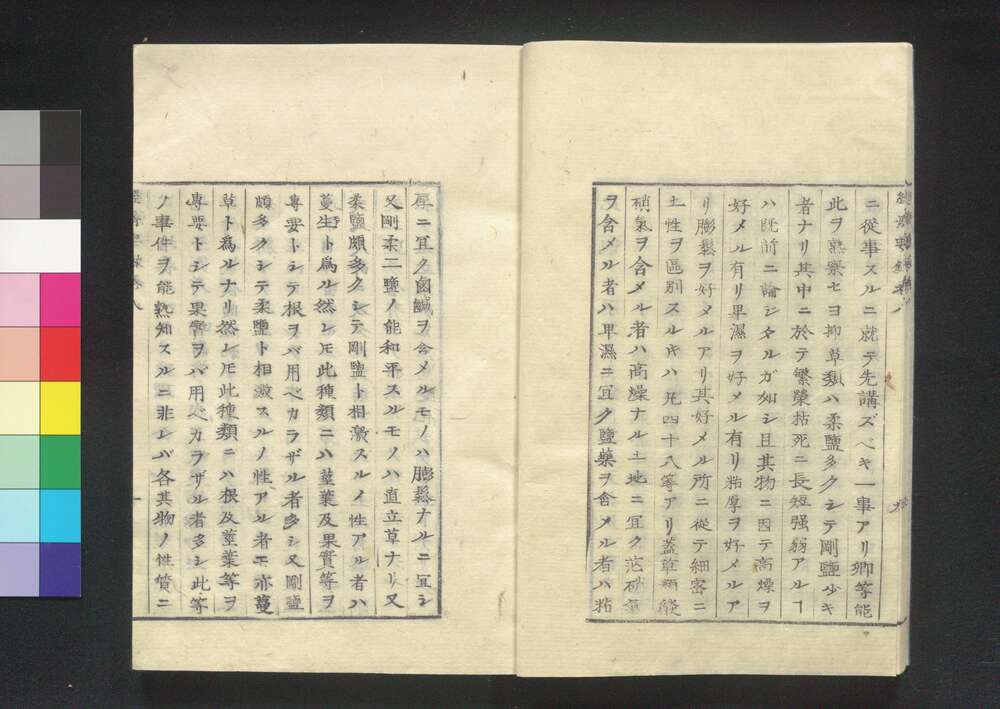 ニ從事スルニ就テ先講ズベキ一事アリ卿等能
此ヲ熟察セヨ抑草類ハ柔鹽多クシテ剛鹽少キ
者ナリ其中ニ於テ繁榮枯死ニ長短强弱アルヿ
ハ既前ニ論シタルガ如シ且其物ニ因テ高燥ヲ
好メル有リ卑濕ヲ好メル有リ粘厚ヲ好メルア
リ膨鬆ヲ好メルアリ其好メル所ニ從テ細密ニ
土性ヲ區別スルキハ凡四十八等アリ蓋草類
硝氣ヲ含メル者ハ高燥ナル土地ニ宜ク
ヲ含メル者ハ卑濕ニ宜ク鹽藥ヲ含メル者ハ粘
厚ニ宜ク鹵鹹ヲ含メルモノハ膨鬆ナルニ宜シ
又剛柔二鹽ノ能和平スルモノハ直立草ナリ又
柔鹽頗多クシテ剛鹽ト相激スルノ性アル者ハ
蔓生ト爲ル然レ𪜈此種類ニハ莖葉及果實等ヲ
專要トシテ根ヲバ用ベカラザル者多シ又剛鹽
頗多クシテ柔鹽ト相激スルノ性アル者モ亦蔓
草ト爲ルナリ然レ𪜈此種類ニハ根及莖葉等ヲ
專要トシテ果實ヲバ用ベカラザル者多シ此等
ノ事件ヲ能熟知スルニ非レバ各其物ノ性質ニ